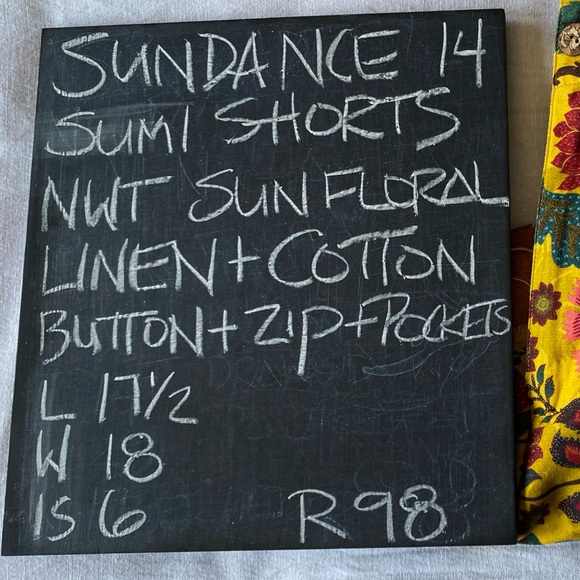 SUNDANCE 14
SUMI SHORTS
NWT SUN FLORAL
LINEN + COTTON
BUTTON + ZIP + POCKETS
L 17 1/2
W 18
IS 6 R 98